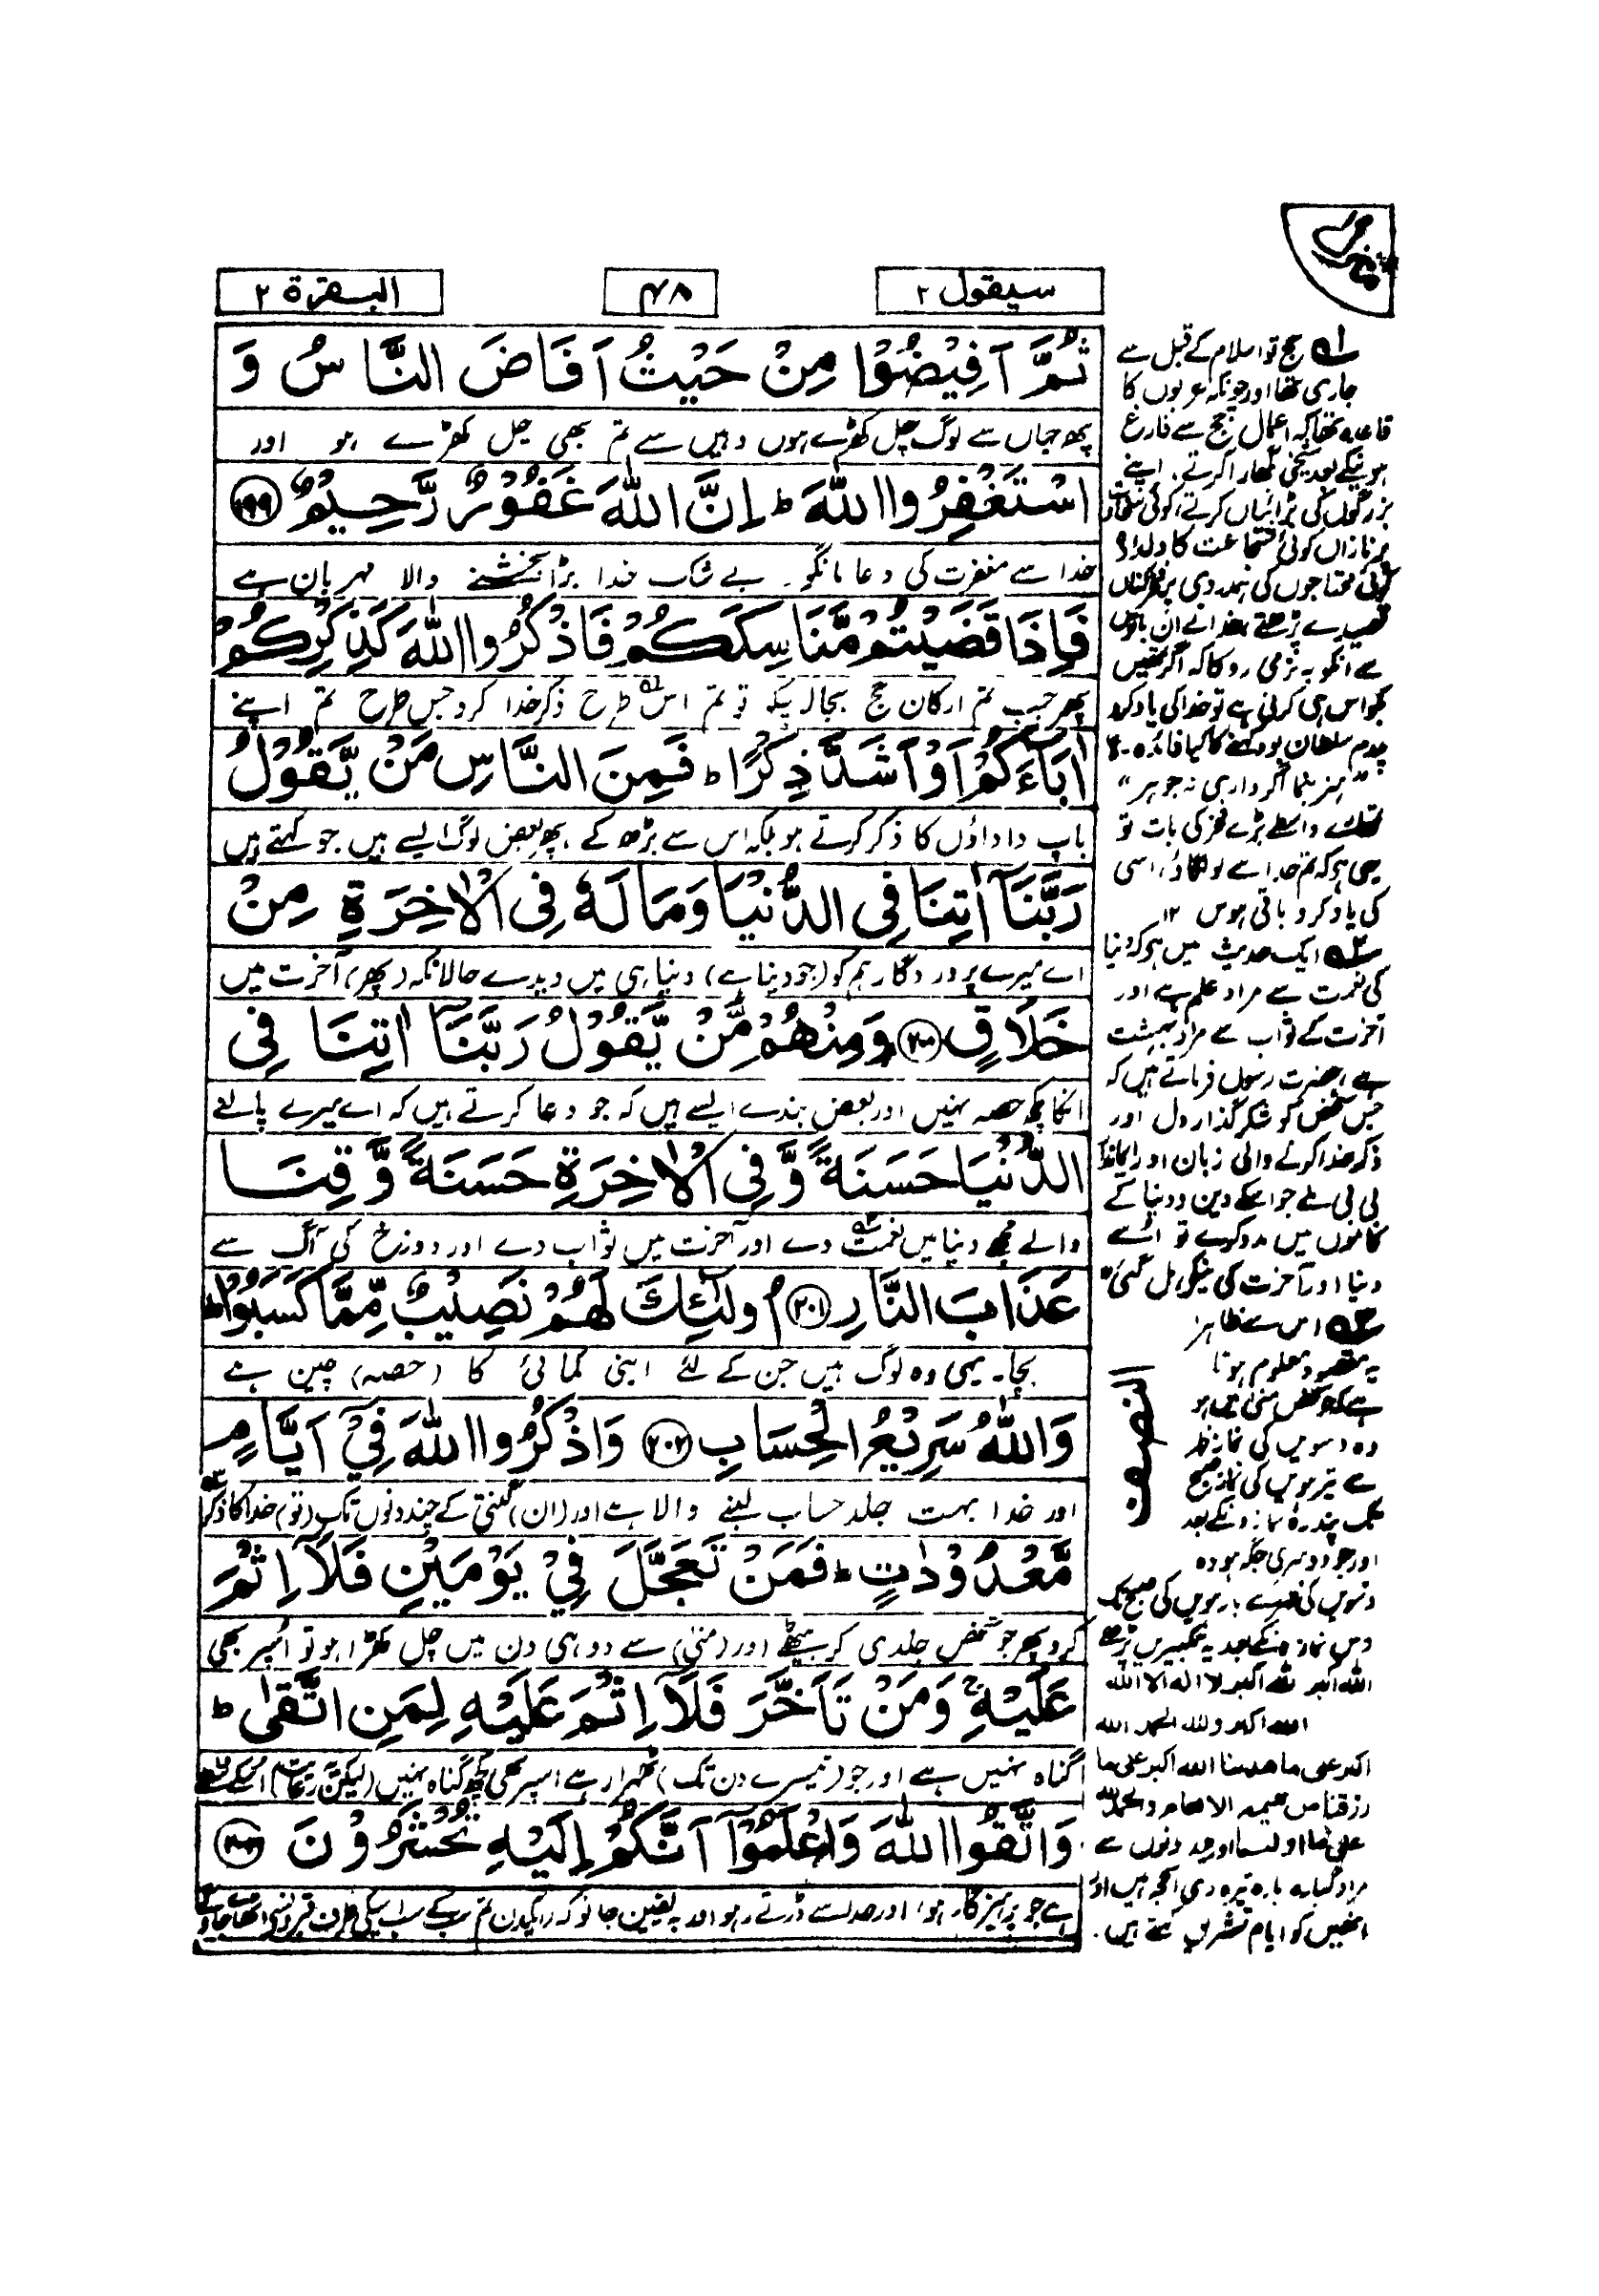 سيقول ٢
٤٨
البقرة ٢
ثُمَّ اَفِيْضُوْا مِنْ حَيْثُ اَفَاضَ النَّاسُ وَ
پھر جہاں سے لوگ چل کھڑے ہوں وہیں سے تم بھی چل کھڑے ہو اور
اسْتَغْفِرُوا اللّٰهَ ؕ اِنَّ اللّٰهَ غَفُوْرٌ رَّحِيْمٌ ﴿١٩٩﴾
خدا سے مغفرت کی دعا مانگو۔ بے شک خدا بڑا بخشنے والا مہربان ہے
فَاِذَا قَضَيْتُمْ مَّنَاسِكَكُمْ فَاذْكُرُوا اللّٰهَ كَذِكْرِكُمْ
پھر جب تم ارکان حج بجا لا چکو تو تم اس طرح ذکر خدا کرو جس طرح تم اپنے
اٰبَآءَكُمْ اَوْ اَشَدَّ ذِكْرًا ؕ فَمِنَ النَّاسِ مَنْ يَّقُوْلُ
باپ داداؤں کا ذکر کرتے ہو بلکہ اس سے بڑھ کے، پھر بعض لوگ ایسے ہیں جو کہتے ہیں
رَبَّنَآ اٰتِنَا فِى الدُّنْيَا وَمَا لَهٗ فِى الْاٰخِرَةِ مِنْ
اے میرے پروردگار ہم کو (جو دینا ہے) دنیا ہی میں دیدے حالانکہ (پھر) آخرت میں
خَلَاقٍ ﴿٢٠٠﴾ وَمِنْهُمْ مَّنْ يَّقُوْلُ رَبَّنَآ اٰتِنَا فِى
انکا کچھ حصہ نہیں اور بعض بندے ایسے ہیں کہ جو دعا کرتے ہیں کہ اے میرے پالنے
الدُّنْيَا حَسَنَةً وَّ فِى الْاٰخِرَةِ حَسَنَةً وَّ قِنَا
والے مجھے دنیا میں نعمت دے اور آخرت میں ثواب دے اور دوزخ کی آگ سے
عَذَابَ النَّارِ ﴿٢٠١﴾ اُولٰٓئِكَ لَهُمْ نَصِيْبٌ مِّمَّا كَسَبُوْا ؕ
بچا۔ یہی وہ لوگ ہیں جن کے لئے اپنی کمائی کا (حصہ) چین ہے
وَاللّٰهُ سَرِيْعُ الْحِسَابِ ﴿٢٠٢﴾ وَاذْكُرُوا اللّٰهَ فِىْٓ اَيَّامٍ
اور خدا بہت جلد حساب لینے والا ہے اور (ان) گنتی کے چند دنوں تک (تو) خدا کا ذکر
مَّعْدُوْدٰتٍ ؕ فَمَنْ تَعَجَّلَ فِىْ يَوْمَيْنِ فَلَاۤ اِثْمَ
کرو پھر جو شخص جلدی کر بیٹھے اور (منیٰ) سے دو ہی دن میں چل کھڑا ہو تو اسپر بھی
عَلَيْهِ ۚ وَمَنْ تَاَخَّرَ فَلَاۤ اِثْمَ عَلَيْهِ لِمَنِ اتَّقٰى ؕ
گناہ نہیں ہے اور جو (تیسرے دن تک) ٹھہرا رہے اسپر بھی کچھ گناہ نہیں (لیکن یہ رعایت)
وَاتَّقُوا اللّٰهَ وَاعْلَمُوْٓا اَنَّكُمْ اِلَيْهِ تُحْشَرُوْنَ ﴿٢٠٣﴾
ہے جو پرہیزگار ہو، اور خدا سے ڈرتے رہو اور یہ یقین جانو کہ ایک دن تم سب کے سب اسکی طرف
حج تو اسلام کے قبل سے
جاری تھا اور چونکہ عربوں کا
قاعدہ تھا کہ اعمال حج سے فارغ
ہونیکے بعد شیخی بگھارا کرتے، اپنے
بزرگوں کی بڑائیاں کرتے، کوئی
پر نازاں کوئی شجاعت کا
کوئی محتاجوں کی ہمدردی پر
قصیدے پڑھتے خدا نے ان باتوں
سے انکو بہ نرمی روکا کہ اگر تمھیں
بکواس ہی کرنی ہے تو خدا کی یاد کرو
پدرم سلطان بود کہنے کا کیا فائدہ
"ہنر بنما اگر داری نہ جوہر"
واسطے بڑے فخر کی بات تو
یہی ہے کہ تم خدا سے لو لگاؤ، اسی
کی یاد کرو باقی ہوس ١٢
ایک حدیث میں ہے کہ دنیا
کی نعمت سے مراد علم ہے اور
آخرت کے ثواب سے مراد بہشت
ہے، حضرت رسول فرماتے ہیں کہ
جس شخص کو شکر گذار دل اور
ذکر خدا کرنے والی زبان اور ایماندار
بی بی ملے جو اسکے دین و دنیا کے
کاموں میں مدد کرے تو اُسے
دنیا اور آخرت کی نیکی مل گئی
اس سے ظاہر
یہ مقصود معلوم ہوتا
ہے کہ جو شخص منیٰ میں ہو
وہ دسویں کی نماز ظہر
سے تیرھویں کی نماز صبح
تک پندرہ نمازونکے بعد
اور جو دوسری جگہ ہو وہ
دسویں کی ظہر سے بارھویں کی صبح تک
دس نمازونکے بعد یہ تکبیریں پڑھے
الله اكبر الله اكبر لا اله الا الله
الله اكبر ولله الحمد الله
اكبر على ما هدينا الله اكبر على ما
رزقنا من بهيمة الانعام والحمد لله
على ما
مراد گیارہ بارہ تیرہ ذی الحجہ ہیں اور
انھیں کو ایام تشریق کہتے ہیں۔
النصف